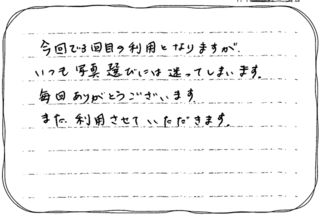 今回で3回目の利用となりますが、
いつも写真選びには迷ってしまいます。
毎回ありがとうございます。
また利用させていただきます。